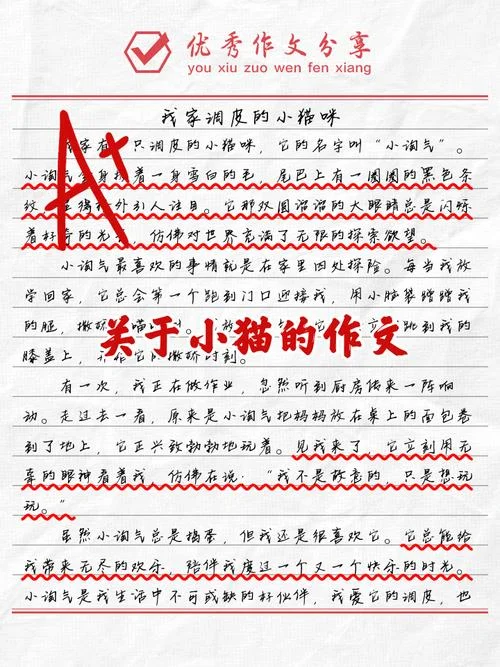 优秀作文分享
you xiu zuo wen fen xiang
A+
我家调皮的小猫咪
家有 只调皮的小猫咪，它的名字叫“小淘气”。
小淘气 身披着一身雪白的毛，尾巴上有一圈圈的黑色条
纹， 得 外引人注目。它那双圆溜溜的大眼睛总是闪烁
着好奇的光 ，仿佛对世界充满了无限的探索欲望。
小淘气最喜欢的事情就是在家里四处探险。每当我放
学回家，它总会第一个跑到门口迎接我，用小脑袋蹭蹭我
的腿， 立 跳到我的
关于小猫的作文
膝盖上， 撒娇时刻。
有一次，我正在做作业，忽然听到厨房传来一阵响
动。走过去一看，原来是小淘气把妈妈放在桌上的面包卷
到了地上，它正兴致勃勃地玩着。见我来了，它立刻用无
辜的眼神看着我，仿佛在说：“我不是故意的，只是想玩
玩。”
虽然小淘气总是捣蛋，但我还是很喜欢它。它总能给
我带来无尽的欢乐，陪伴我度过一个又一个快乐的时光。
小淘气是我生活中不可或缺的好伙伴，我爱它的调皮，也